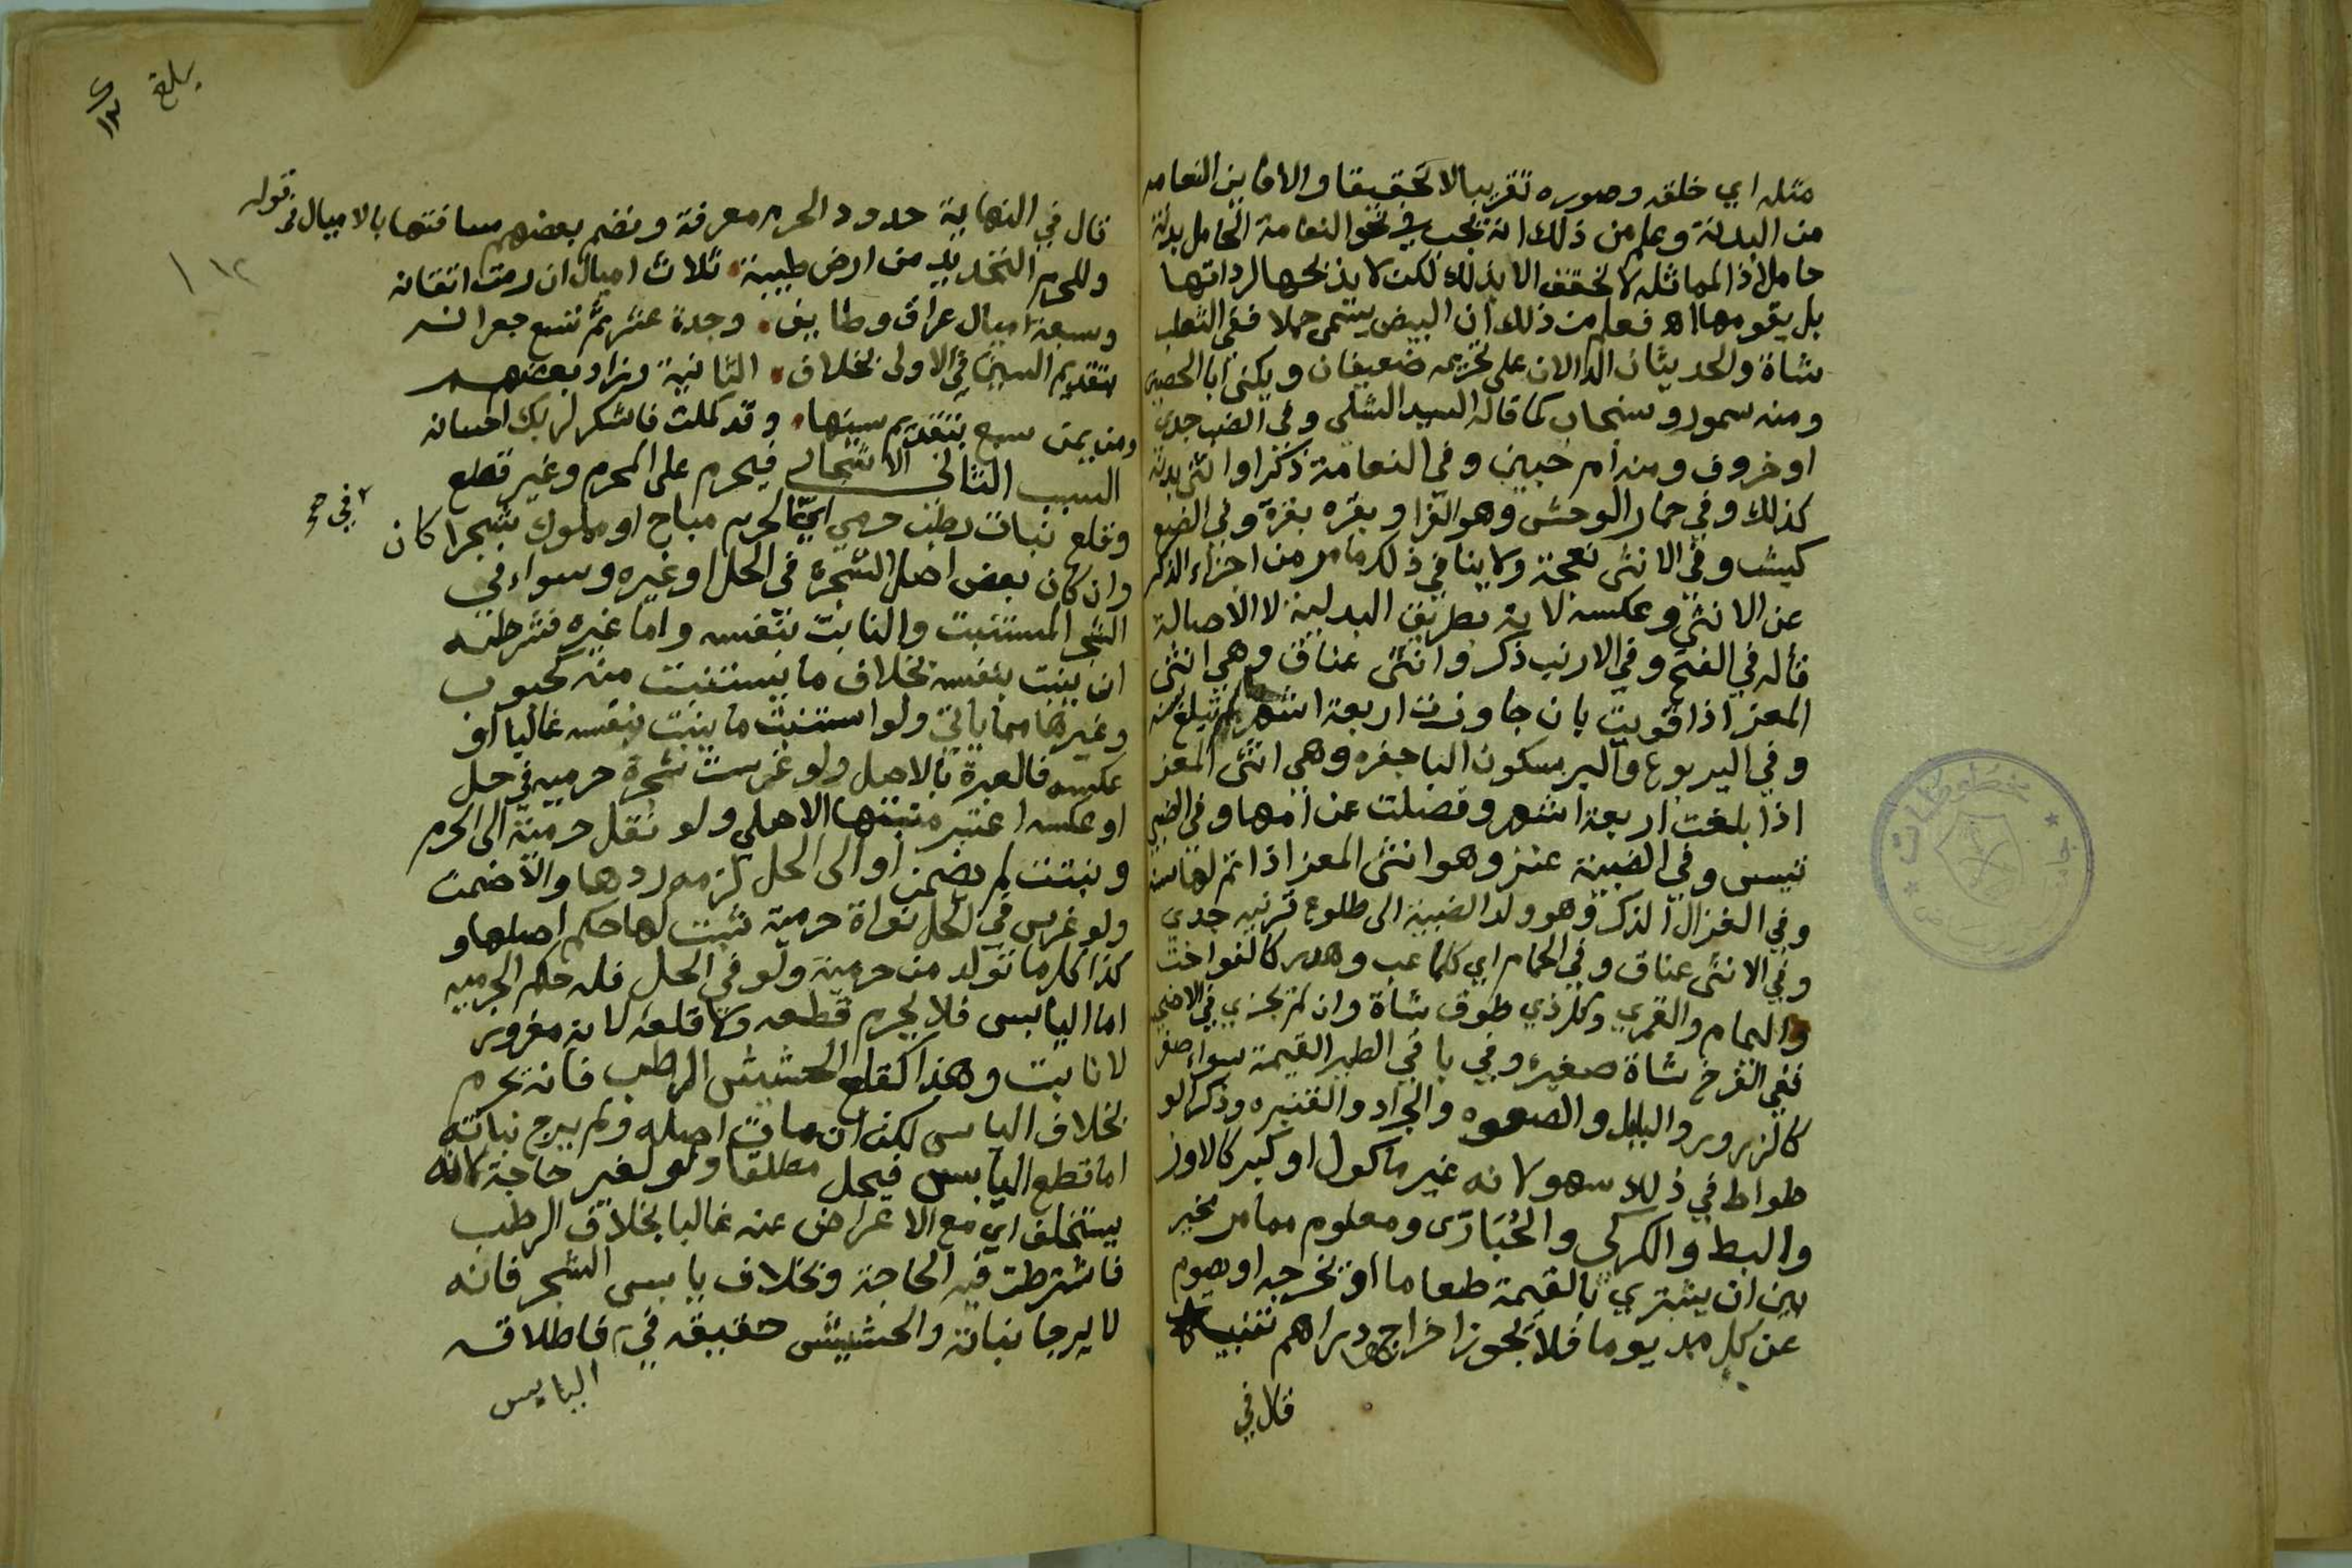 مثله اي خلقه وصوره تقريبا لا تحقيقا والا فاين النعامه
من البدنة وعلم من ذلك انه يجب في نحو النعامة الحامل بدنة
حاملا اذ المماثله لا تحقق الا بذلك لكن لا يذبحها لرداتها
بل يقومها اهـ فعلم من ذلك ان البيض يسمى حملا ففي الثعلب
شاة والحديثان الدالان على تحريمه ضعيفان ويكنى ابا الحصين
ومنه سمور وسنجاب كما قاله السيد الشلي وفي الضب جدي
او خروف ومنه ام حبين وفي النعامة ذكرا وانثى بدنة
كذلك وفي حمار الوحش وهو الفرا وبقره بقرة وفي الضبع
كبش وفي الانثى نعجة ولا ينافي ذلك ما مر من اجزاء الذكر
عن الانثى وعكسه لانه بطريق البدلية لا الاصالة
قاله في الفتح وفي الارنب ذكر وانثى عناق وهي انثى
المعز اذا قويت بان جاوزت اربعة اشهر لم تبلغ سنه
وفي اليربوع والوبر بسكون البا جفره وهي انثى المعز
اذا بلغت اربعة اشهر وفصلت عن امها وفي الضبي
تيس وفي الضبية عنز وهو انثى المعز اذا تم لها سنة
وفي الغزال الذكر وهو ولد الضبية الى طلوع قرنيه جدي
وفي الانثى عناق وفي الحمام اي كلما عب وهدر كالفواخت
واليمام والقمري وكل ذي طوق شاة وان لم تجزي في الاضحية
ففي الفرخ شاة صغيره وفي باقي الطير القيمة سواء صغر
كالزرور والبلبل والصعوه والجراد والقنبره وذكر الو
طواط في ذلك سهو لانه غير ماكول او كبر كالاوز
والبط والكركي والحُبَارَى ومعلوم مما مر تخير
بين ان يشتري بالقيمة طعاما او يخرجه او يصوم
عن كل مد يوما فلا يجوز اخراج دراهم تنبيه
قال في
يلغ
١٢
قال في النهاية حدود الحرم معرفة ونضم بعضهم مسافتها بالاميال في قوله
وللحرم التحديد من ارض طيبة ثلاث اميال ان رمت اتقانه
وسبعة اميال عراق وطايف وجدة عشر ثم تسع جعرانه
بتقديم السين في الاولى بخلاف الثانية وزاد بعضهم
ومن يمن سبع بتقديم سينها وقد كملت فاشكر لربك احسانه
السبب الثاني الاشجار فيحرم على المحرم وغير قطع
وقلع نبات رطب حرمي اي الحرم مباح او مملوك شجرا كان
وان كان بعض اصل الشجرة في الحل او غيره وسواء في
الشجر المستنبت والنابت بنفسه واما غيره فشرطه
ان ينبت بنفسه بخلاف ما يستنبت منه كحبوب
وغيرها مما ياتي ولو استنبت ما ينبت بنفسه غالبا او
عكسه فالعبرة بالاصل ولو غرست شجرة حرميه في حل
او عكسه اعتبر منبتها الاصلي ولو نقل حرمية الى الحرم
ونبتت لم يضمن او الى الحل لزمه ردها والا ضمن
ولو غرس في الحل نواة حرمية ثبت لها حكم اصلها و
كذا كل ما تولد من حرمية ولو في الحل فله حكم الحرميه
اما اليابس فلا يحرم قطعه ولا قلعه لانه مغروز
لا نابت وهذا كقلع الحشيش الرطب فانه يحرم
بخلاف اليابس لكن ان مات اصله ولم يرج نباته
اما قطع اليابس فيحل مطلقا ولو لغير حاجة لانه
يستخلف اي مع الاعراض عنه غالبا بخلاف الرطب
فاشترطت فيه الحاجة وبخلاف يابس الشجر فانه
لا يرجا نباته والحشيش حقيقه في فاطلاقه
اليابس